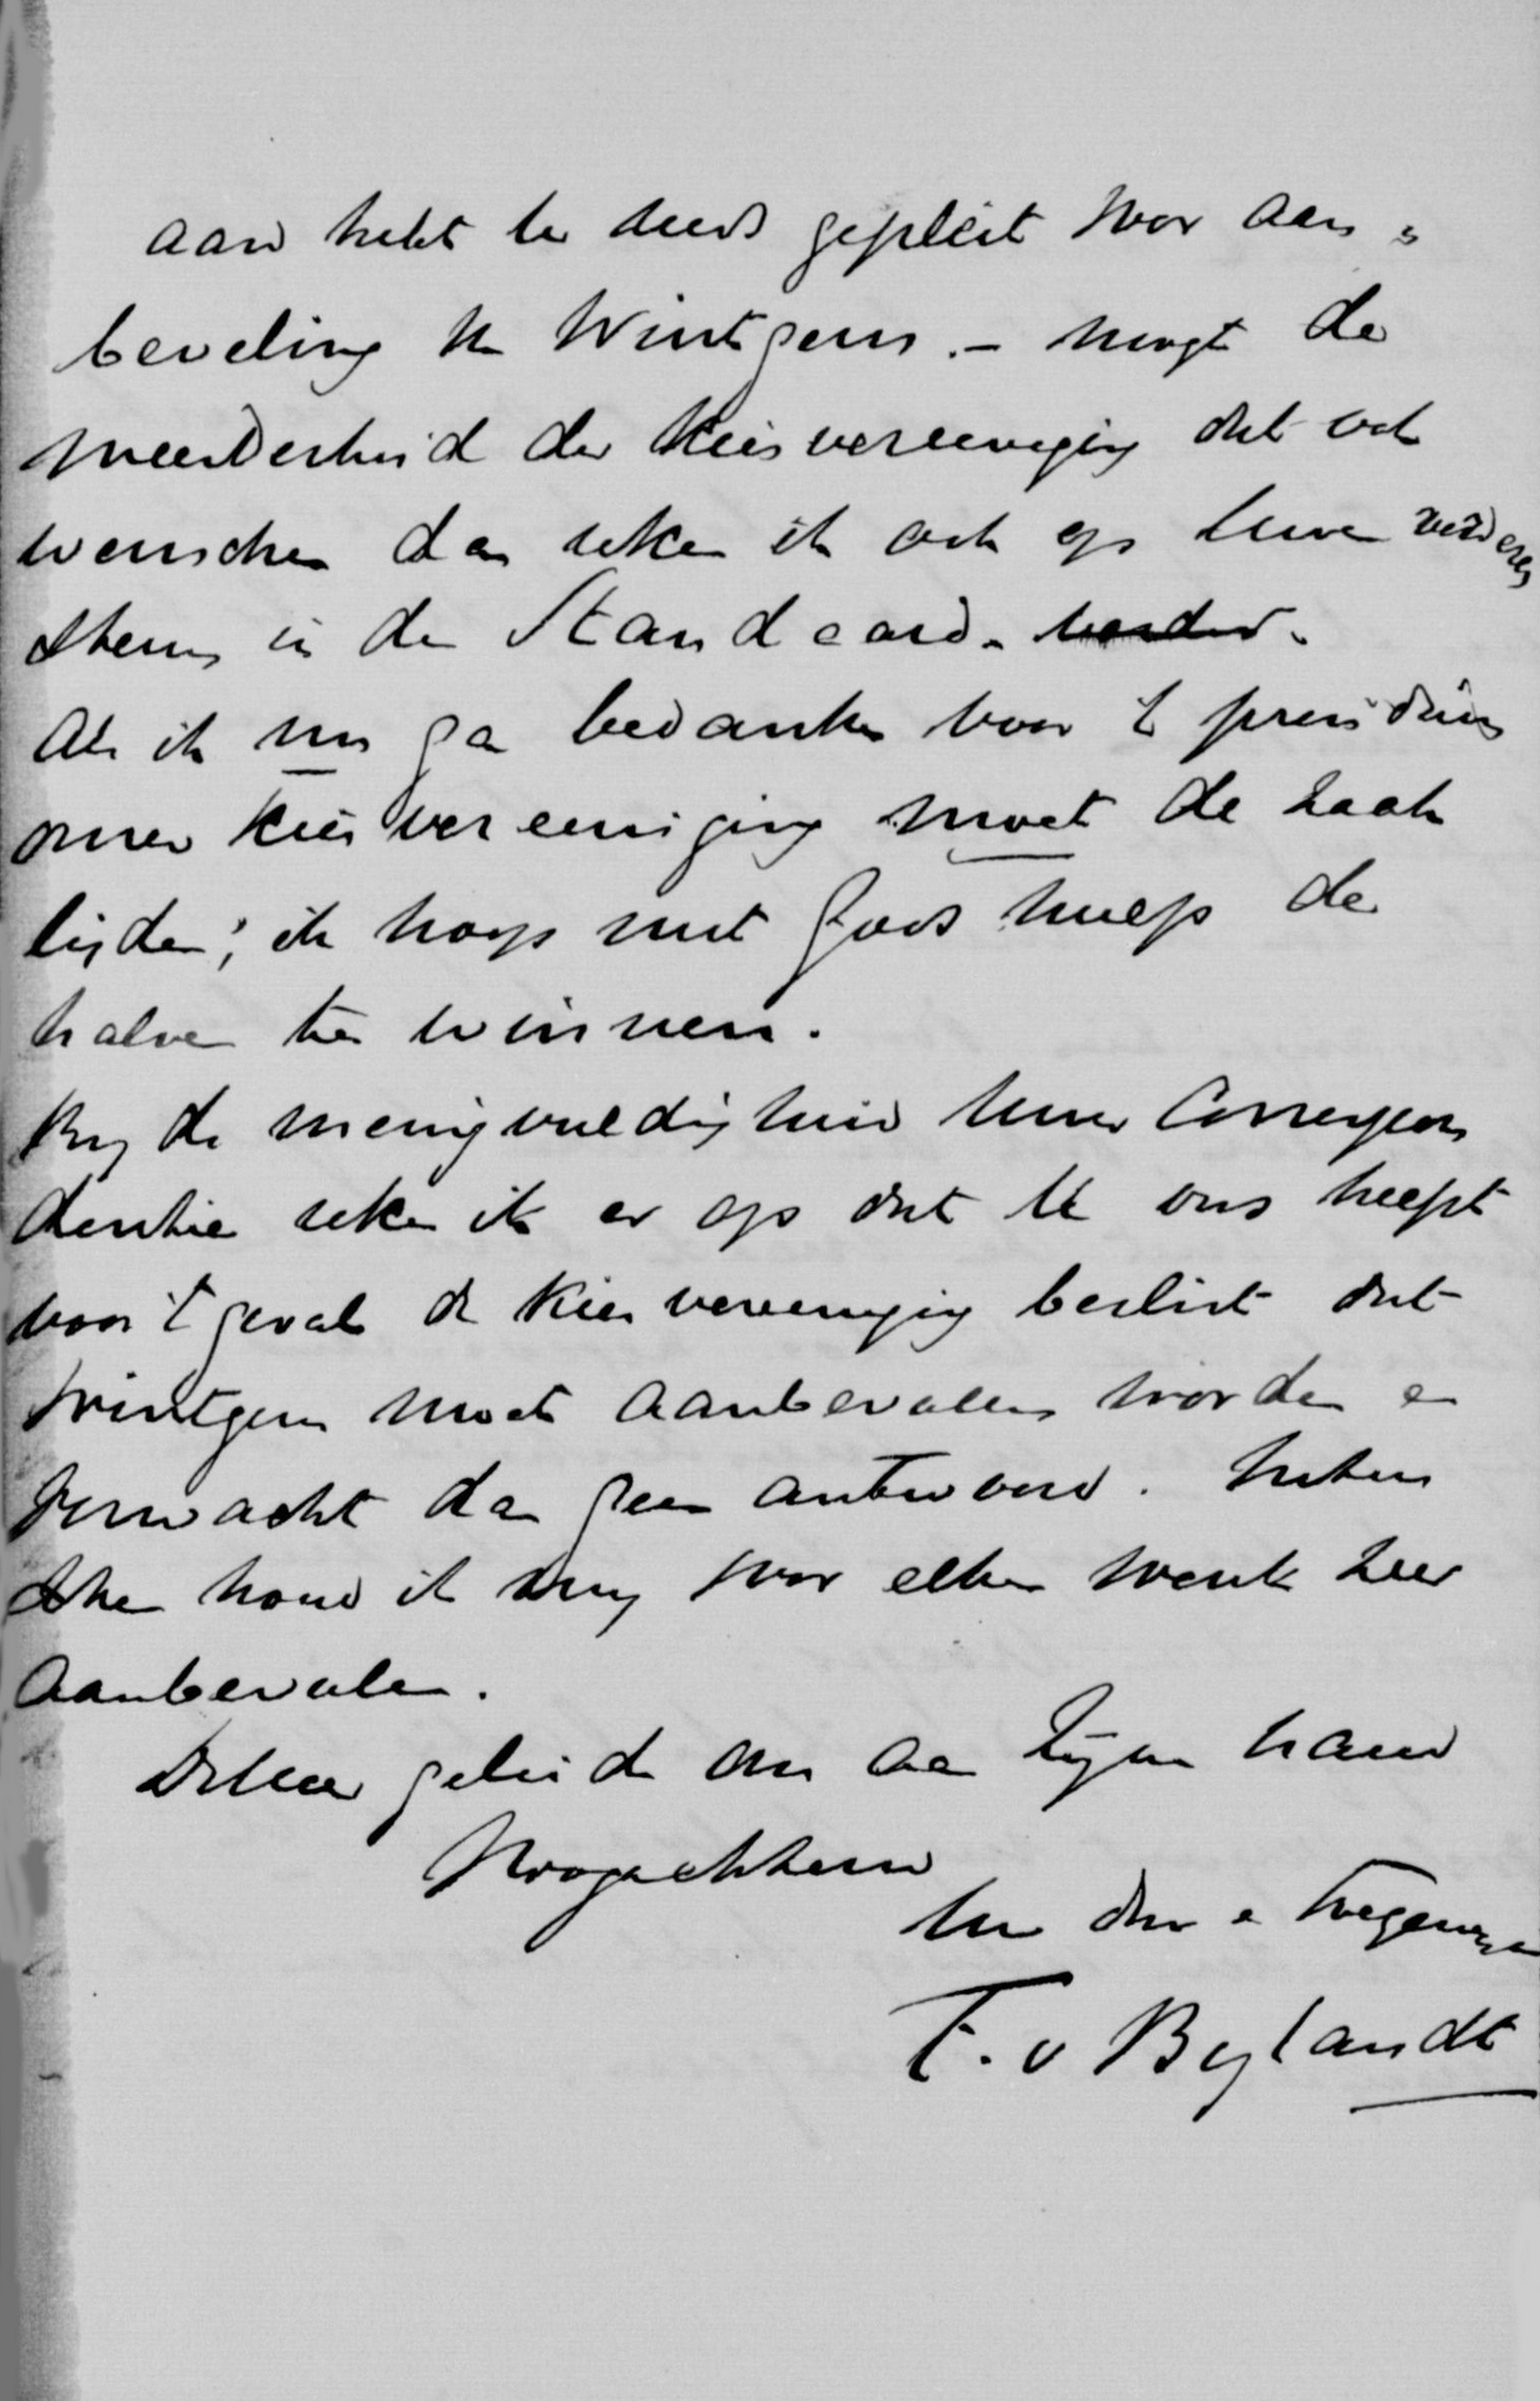 aard hebt U reeds gepleit voor aan-
beveling v Wintgens. - mogt de
meerderheid der Kiesvereeniging dat ook
wenschen dan reken ik ook op Uwe verdere
steun in de Standaard.
Als ik nu ga bedanken voor 't presidium
onzer Kiesvereeniging moet de zaak
lijden; ik hoop met Gods hulp de
halve te winnen.
Bij de menigvuldigheid Uwer Correspon
dentie reken ik er op dat U ons helpt
voor 't geval de Kiesvereeniging beslist dat
Wintgens moet aanbevolen worden en
verwacht dan geen antwoord.
houd ik mij voor elken wenk zeer
aanbevolen.
De Heer geleide ons aan Zijne hand
Hoogachtend
Uw dw. e toegenegen
F. v Bylandt